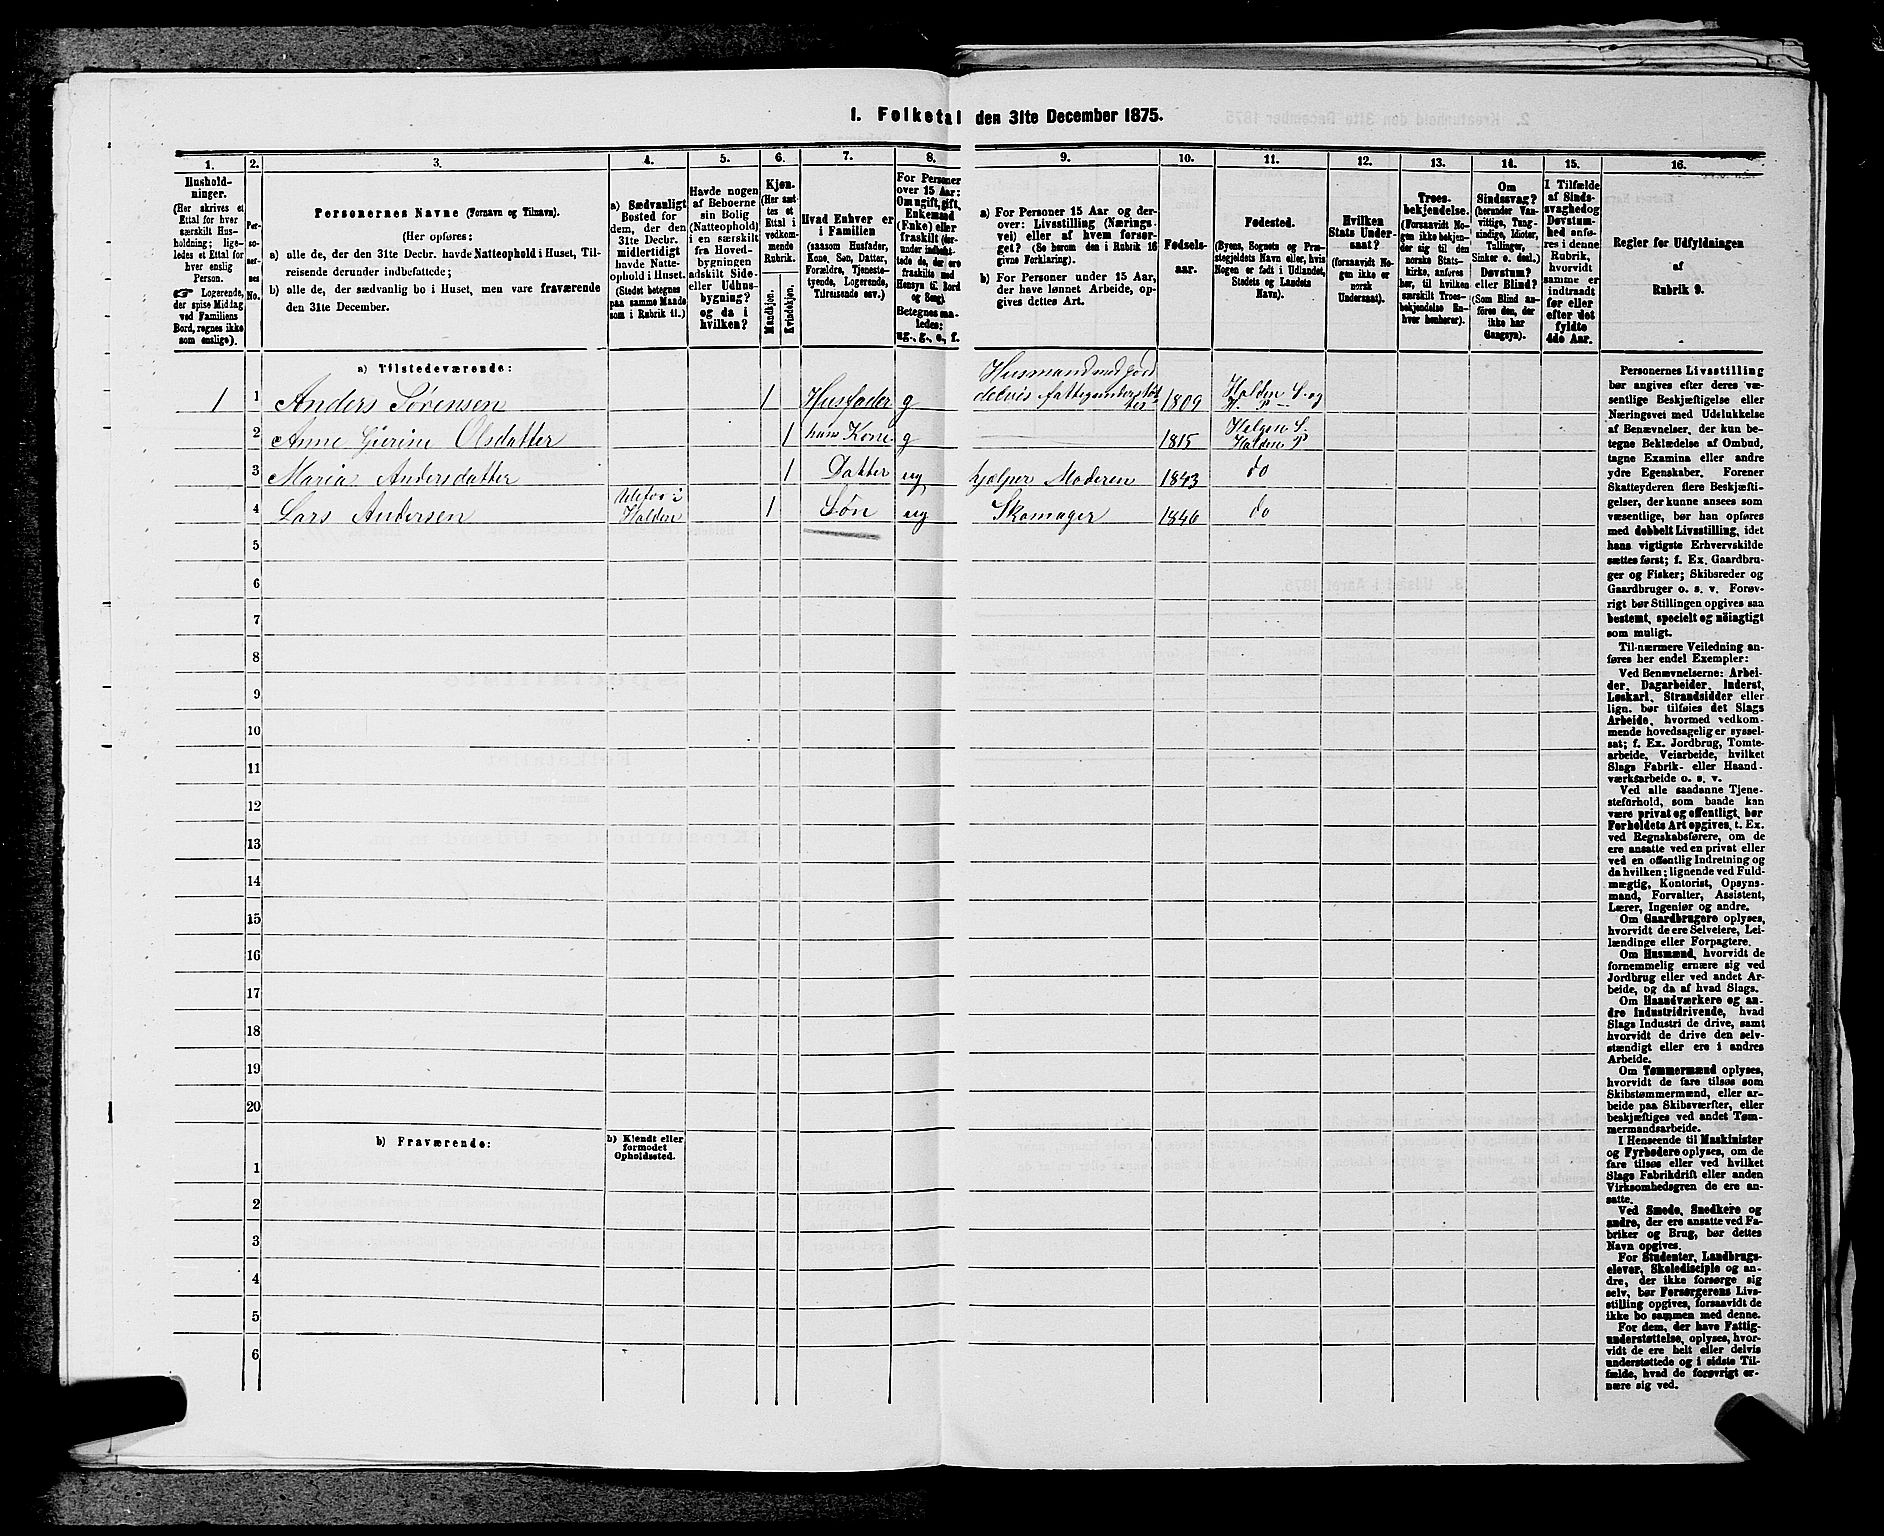 1. Folketal den 31te December 1875.
1.
2.
3.
4.
5.
6.
7.
8.
9.
10.
11.
12.
13.
14.
15.
16.
Hushold-
ninger.
(Her skrives et
Ettal for hver
særskilt Hus-
holdning; lige-
ledes et Ettal
for hver
enslig
Person.
☞ Logerende,
der spise Middag
ved Familiens
Bord, regnes ikke
som enslige).
Per-
so-
ner-
nes
No.
Personernes Navne (Fornavn og Tilnavn).
(Her opføres:
a) alle de, der den 31te Decbr. havde Natteophold i Huset, Til-
reisende derunder indbefattede;
b) alle de, der sædvanlig bo i Huset, men vare fraværende
den 31te December.
a) Sædvanligt
Bosted for
dem, der den
31te Decbr.
midlertidigt
havde Natte-
ophold i Huset.
(Stedet betegnes
paa samme Maade
som i Rubrik 11.)
Havde nogen
af Beboerne
sin Bolig
(Natteophold)
i en særskilt
fra Hoved-
bygningen
adskilt Side-
eller Udhus-
bygning?
og da i
hvilken?
Kjøn.
(Her sæt-
tes et
Ettal i
vedkom-
mende
Rubrik.
Mandkjøn.
Kvindekjøn.
Hvad Enhver er
i Familien
(saasom Husfader,
Kone, Søn, Datter,
Forældre, Tjeneste-
tyende, Logerende,
Tilreisende osv.)
For Personer
over 15 Aar:
Om ugift, gift,
Enkemand
(Enke) eller
fraskilt
Betegnes saa-
ledes:
ug., g., e., f.
a) For Personer 15 Aar og der-
over: Livsstilling (Nærings-
vei) eller af hvem forsør-
get? (Se herom den i Rubrik 16
givne Forklaring).
b) For Personer under 15 Aar,
der have lønnet Arbeide, op-
gives dettes Art.
Fødsels-
aar.
Fødested.
(Byens, Sognets og Præ-
stegjeldets Navn eller, hvis
Nogen er født i Udlandet,
Stedets og Landets
Navn).
Hvilken
Stats Under-
saat?
(forsaavidt No-
gen ikke er
norsk
Undersaat).
Troes-
bekjendelse.
(Forsaavidt No-
gen ikke bekjen-
der sig til den
norske Stats-
kirke, anføres
her, til hvilken
særskilt Troes-
bekjendelse En-
hver henhører).
Om
Sindssvag?
(herunder Van-
vittige, Tung-
sindige, Idioter,
Tullinger,
Sinker o. desl.)
Døvstum?
eller Blind?
(Som Blind an-
føres den, der
ikke har
Gangsyn).
I Tilfælde
af Sinds-
svaghed og
Døvstum-
hed anfø-
res i denne
Rubrik,
hvorvidt
samme er
indtraadt
før eller
efter det
fyldte
4de Aar.
Regler for Udfyldningen
af
Rubrik 9.
a) Tilstedeværende:
1 1 Anders Sörensen 1 Husfader g Husmand med jord
delvis fattigunderstöt
tet 1809 Halden S. og
H. P.
2 Anne Gurine Olsdatter 1 hans Kone g 1815 Helgen S.
Halden P
3 Maria Andersdatter 1 Datter ug hjælper Moderen 1843 do
4 Lars Andersen Ulefos i
Halden 1 Søn ug Skomager 1846 do
5
6
7
8
9
10
11
12
13
14
15
16
17
18
19
20
b) Fraværende:
b) Kjendt eller
formodet
Opholdssted.
1
2
3
4
5
6
Personernes Livsstilling
bør angives efter deres væ-
sentlige Beskjæftigelse eller
Næringsvei med Udelukkelse
af Benævnelser, der kun be-
tegne Beklædelse af Ombud,
tagne Examina eller andre
ydre Egenskaber. Forener
Skatteyderen flere Beskjæfti-
gelser, der kunne ansees som
væsentlige, bør han opføres
med dobbelt Livsstilling, idet
hans vigtigste Erhvervskilde
sættes først; f. Ex. Gaardbru-
ger og Fisker; Skibsreder og
Gaardbruger o. s. v. Forøv-
rigt bør Stillingen opgives saa
bestemt, specielt og nöiagtigt
som muligt.
Til nærmere Veiledning an-
føres her endel Exempler:
Ved Benævnelserne: Arbei-
der, Dagarbeider, Inderst,
Løskarl, Strandsidder eller
lign. bør tilføies det Slags
Arbeide, hvormed vedkom-
mende hovedsagelig er syssel-
sat; f. Ex. Jordbrug, Tomte-
arbeide, Veiarbeide, hvilket
Slags Fabrik- eller Haand-
værksarbeide o. s. v.
Ved alle saadanne Tjene-
steforhold, som baade kan
være privat og offentligt, bør
Forholdets Art opgives, t. Ex.
ved Regnskabsførere, om de
ere ansatte ved en privat eller
ved en offentlig Indretning og
da hvilken; lignende ved Fuld-
mægtig, Kontorist, Opsyns-
mand, Forvalter, Assistent,
Lærer, Ingeniør og andre.
Om Gaardbrugere oplyses,
hvorvidt de ere Selveiere, Lei-
lændinge eller Forpagtere.
Om Husmænd, hvorvidt de
fornemmelig ernære sig ved
Jordbrug eller ved andet Ar-
beide, og da af hvad Slags.
Om Haandværkere og an-
dre Industridrivende, hvad
Slags Industri de drive, samt
hvorvidt de drive den selv-
stændigt eller ere i andres
Arbeide.
Om Tømmermænd oplyses,
hvorvidt de fare tilsøs som
Skibstømmermænd, eller ar-
beide paa Skibsværfter, eller
beskjæftiges ved andet Tøm-
mermandsarbeide.
I Henseende til Maskinister
og Fyrbødere oplyses, om de
fare tilsøs eller ved hvilket
Slags Fabrikdrift eller anden
Virksomhedsgren de ere an-
satte.
Ved Smede, Snedkere og
andre, der ere ansatte ved Fa-
briker og Brug, bør dettes
Navn opgives.
For Studenter, Landbrugs-
elever, Skoledisciple og an-
dre, der ikke forsørge sig
selv, bør Forsørgerens Livs-
stilling opgives, forsaavidt de
ikke bo sammen med denne.
For dem, der have Fattig-
understøttelse, oplyses, hvor-
vidt de ere helt eller delvis
understøttede og i sidste Til-
fælde, hvad de forøvrigt er-
nære sig ved.